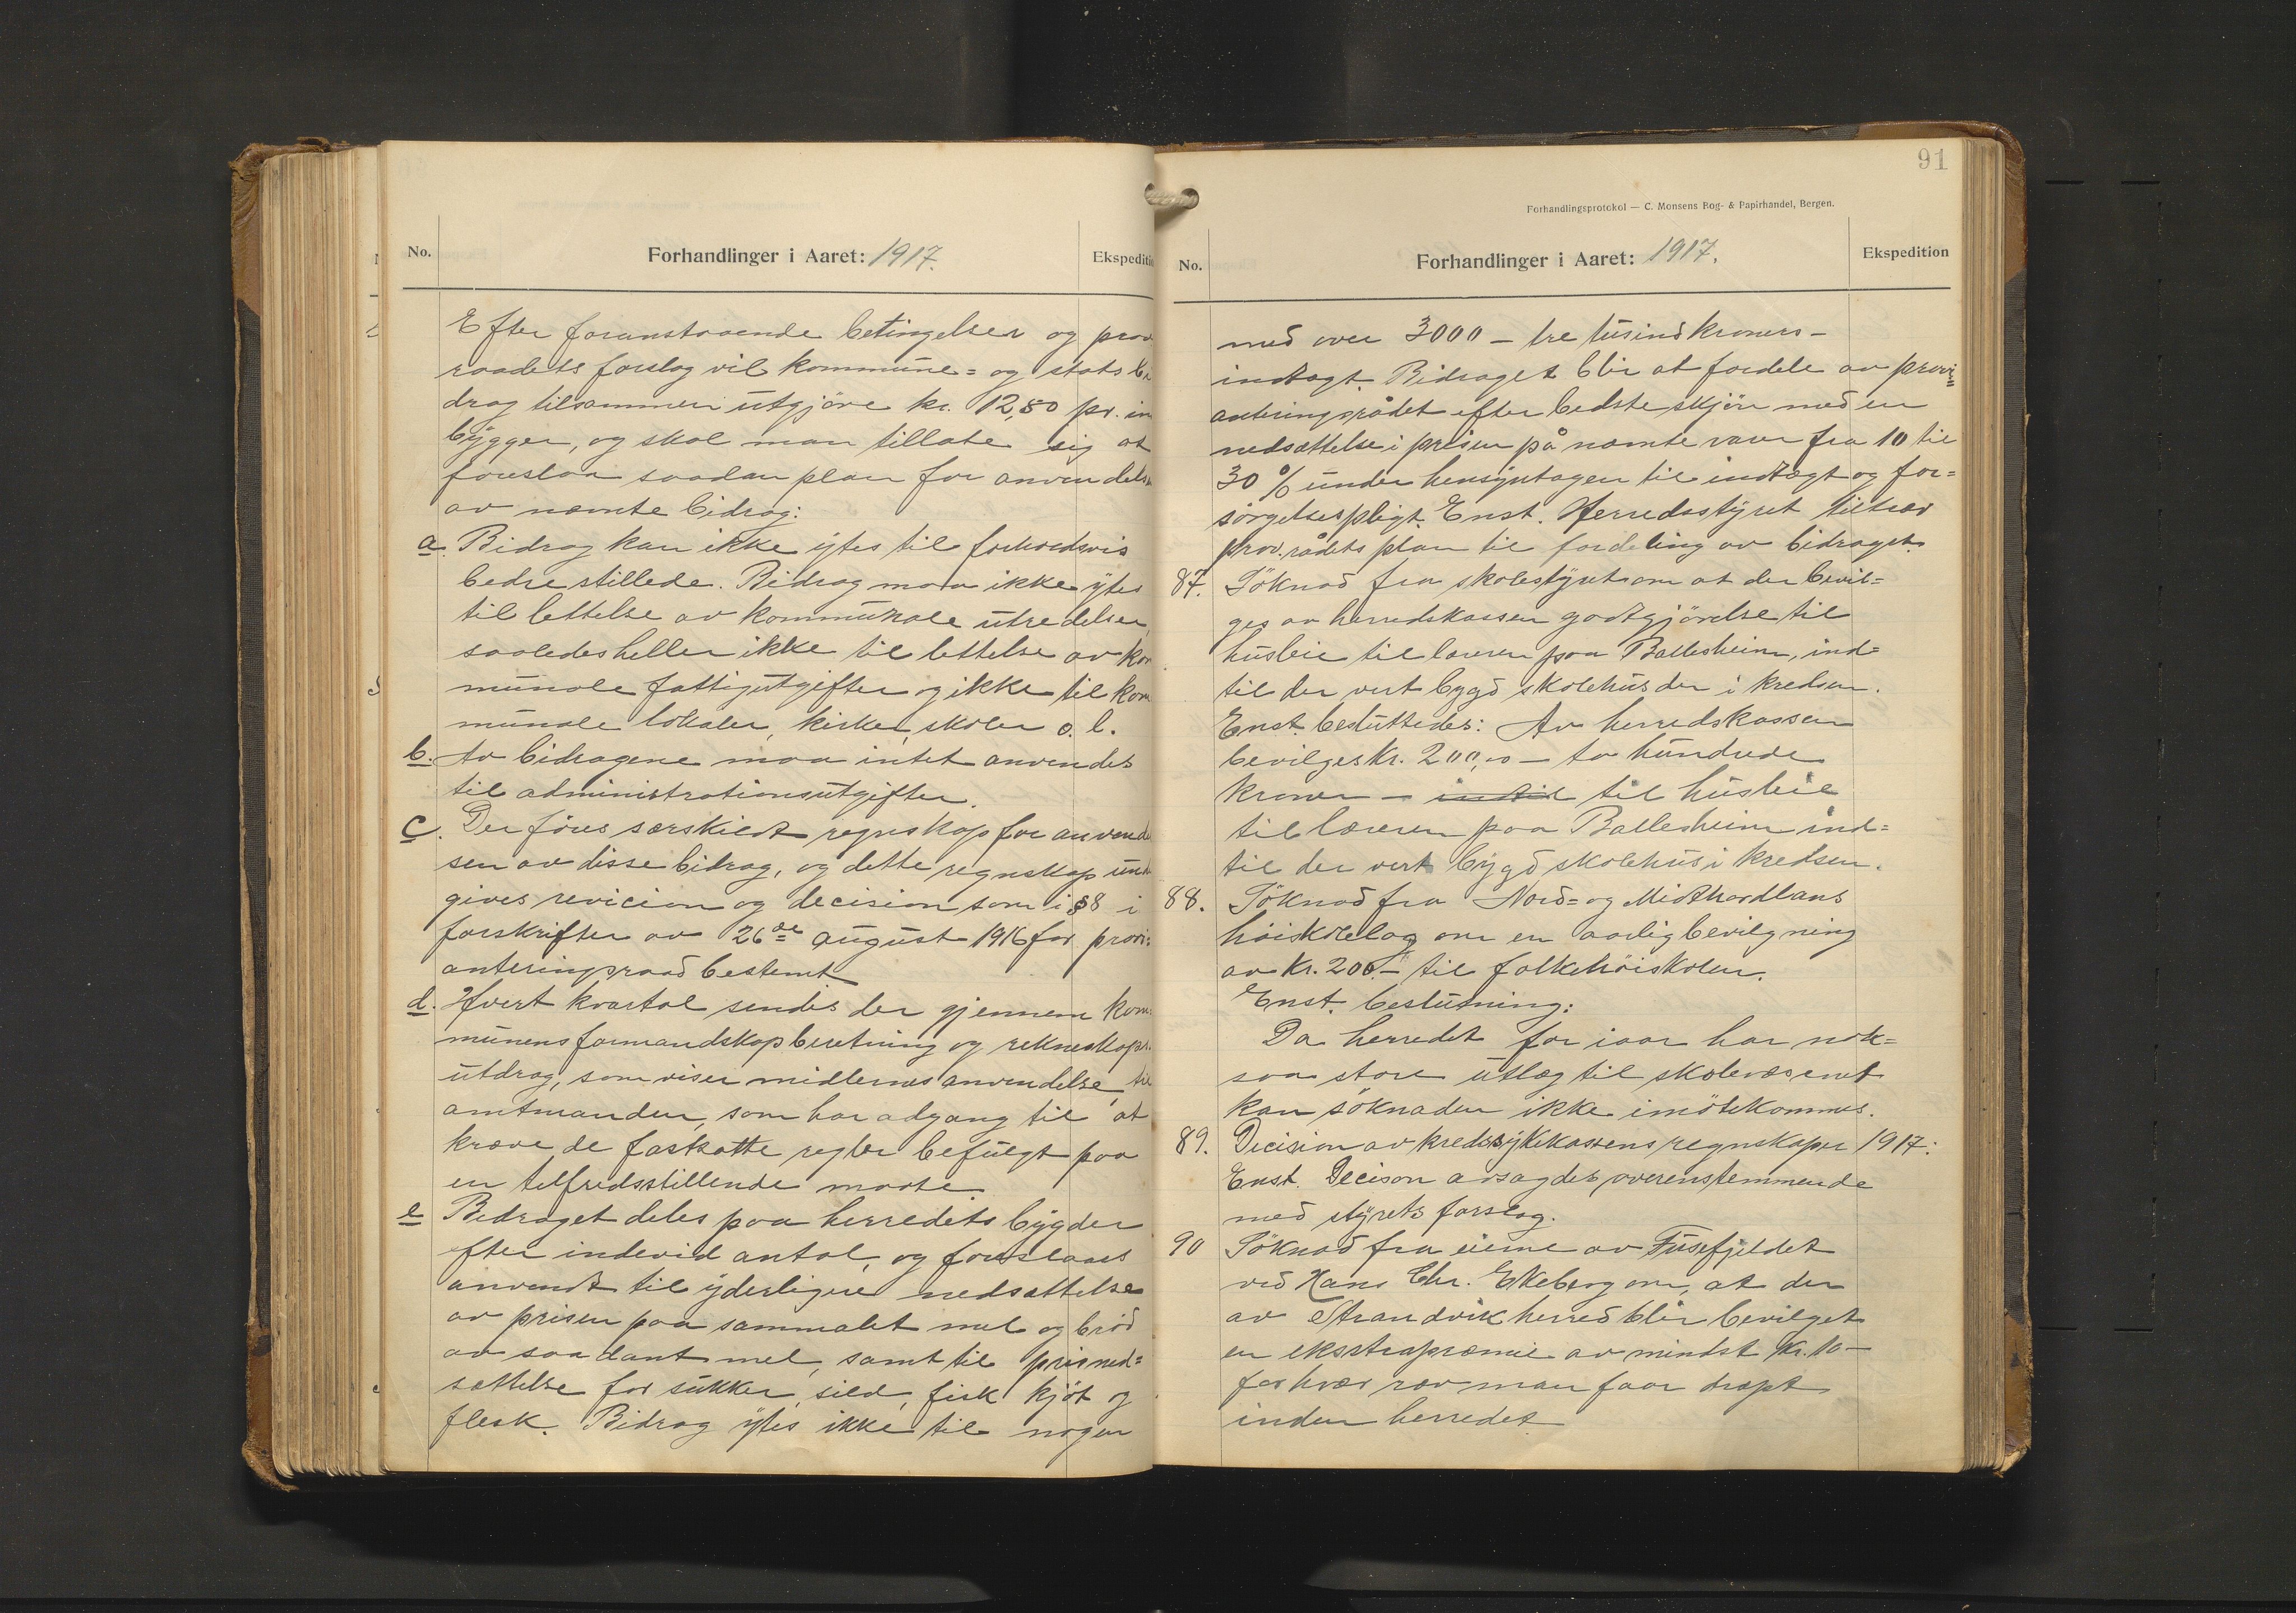 No.
Forhandlinger i Aaret: 1917.
Ekspeditio
Efter foranstaaende betingelser og prov
raadets forslag vil kommune= og stats bi
drag tilsammen utgjöre kr. 12,50 pr. in
bygger, og skal man tillate sig at
foreslaa saadan plan for anvendelse
av nævnte bidrag:
a. Bidrag kan ikke ytes til forholdsvis
bedrestillede. Bidrag maa ikke ytes
til lettelse av kommunale utredelser,
saaledes heller ikke til lettelse av kom
munale fattigutgifter og ikke til kom
munale lokaler, kirker, skoler o. l.
b. Av bidragene maa intet anvendes
til administrationsutgifter.
c. Der föres særskildt regnskap for anvendel
sen av disse bidrag, og dette regnskap und
gives revicion og decision som i § 8 i
forskrifter av 26de august 1916 for provi=
anteringsraad bestemt.
d. Hvert kvartal sendes der gjennem kom=
munens formandskap beretning og rekneskaps
utdrag, som viser midlernes anvendelse, til
amtmanden, som har adgang til at
kræve de fastsatte regler befulgt paa
en telfredsstillende maate.
e Bidraget deles paa herredets bygder
efter individ antal, og foreslaaes
anvendt til yderligere nedsættelse
av prisen paa sammalet mel og bröd
av saadant mel, samt til prisned=
sættelse for sukker, sild, fisk kjöt og
flesk. Bidrag ytes ikke til nogen
91
Forhandlingsprotokol — C. Monsens Bog- & Papirhandel, Bergen.
No.
Forhandlinger i Aaret: 1917.
Ekspedition
med over 3000 — tre tusind kroners —
indtægt. Bidraget blir at fordele av provi=
anteringsrådet efter bedste skjön med en
nedsættelse i prisen på nævnte varer fra 10 til
30 % under hensyntagen til indtægt og for=
sörgelsespligt. Enst. Herredsstyret tiltræd
prov.rådets plan til fordeling av bidraget.
87. Söknad fra skolestyret om at der bevil=
ges av herredskassen godtgjörelse til
husleie til læreren paa Ballesheim, ind=
til der vert bygd skolehus der i kredsen.
Enst. besluttedes: Av herredskassen
bevilges kr. 200,00 — to hundrede
kroner — indtil til husleie
til læreren paa Ballesheim ind=
til der vert bygd skolehus i kredsen.
88. Söknad fra Nord= og Midthordlans
höiskolelag om en aarlig bevilgning
av kr. 200.— til folkehöiskolen.
Enst. beslutning:
Da herredet for iaar har nok=
saa store utlæg til skolevæsenet
kan söknaden ikke imötekommes.
89. Dicision av kredssykekassens regnskaper 1917:
Enst. Decison avsagdes overenstemmende
med styrets forslag.
90 Söknad fra eierne av Fusefjeldet
ved Hans Chr. Ekeberg om, at der
av Strandvik herred blir bevilget
en eksstrapræmie av mindst kr. 10 —
for hver rev man faar dræpt
inden herredet